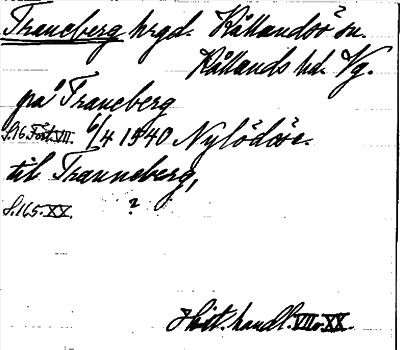 Traneberg hrgd. Kållandsö sn.
Kållands hd. Vg.
på Traneberg
S.16 Fört. VII. 6/4 1540 Nylödöse.
til Tranneberg,
S.165.XX. ?
Hist. handl. VII o. XX.